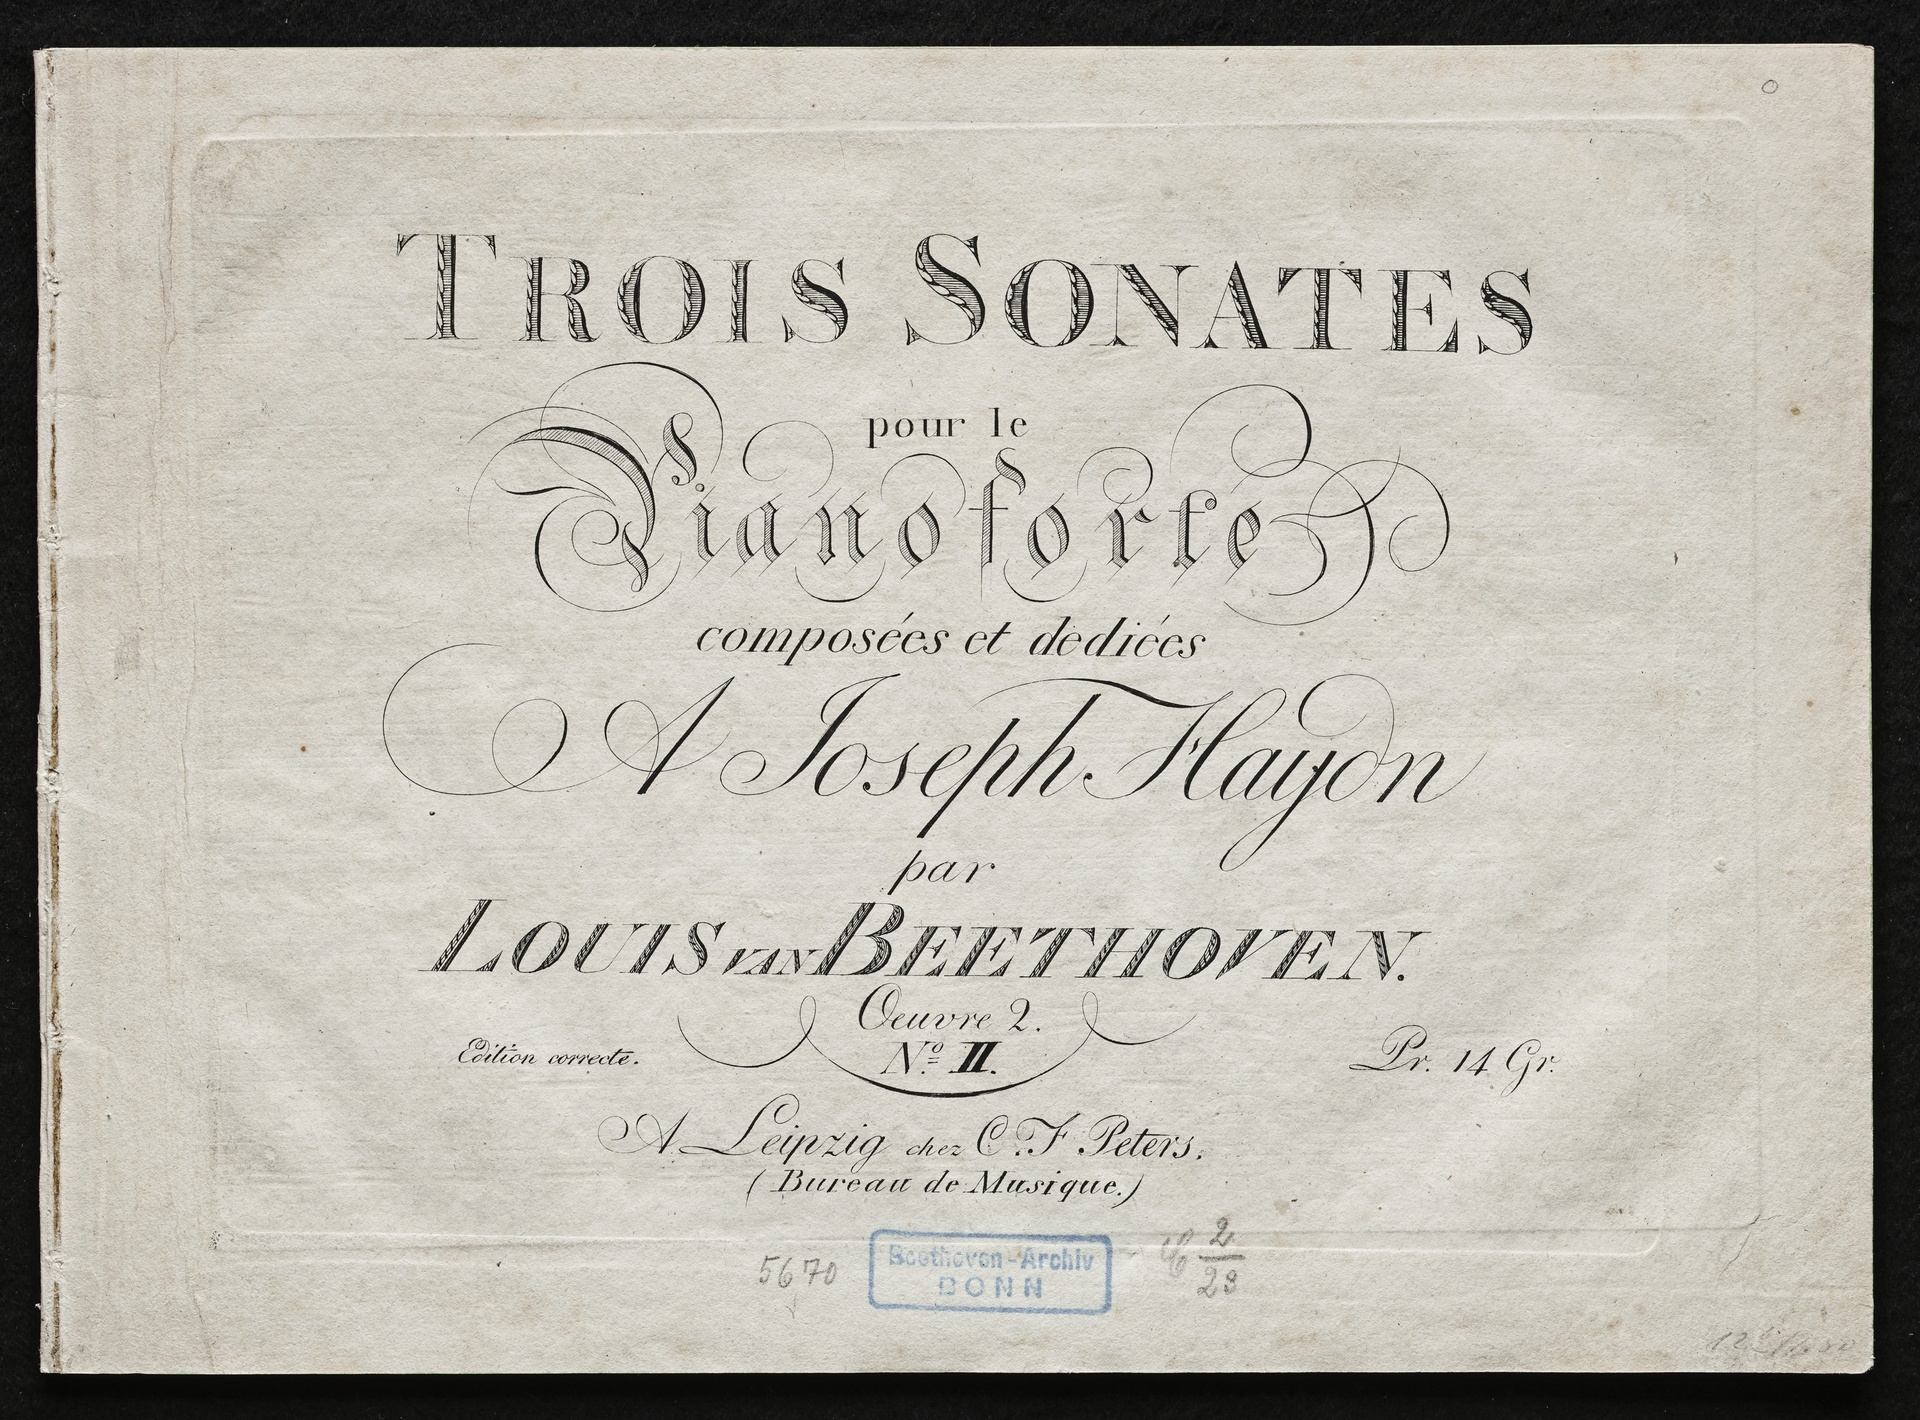 TROIS SONATES
pour le
Pianoforte
composées et dediées
A Joseph Haydn
par
LOUIS VAN BEETHOVEN.
Oeuvre 2.
Edition correcte.
No. II.
Pr. 14 Gr.
A Leipzig chez C. F. Peters.
(Bureau de Musique.)
5670
Beethoven-Archiv
BONN
2
23